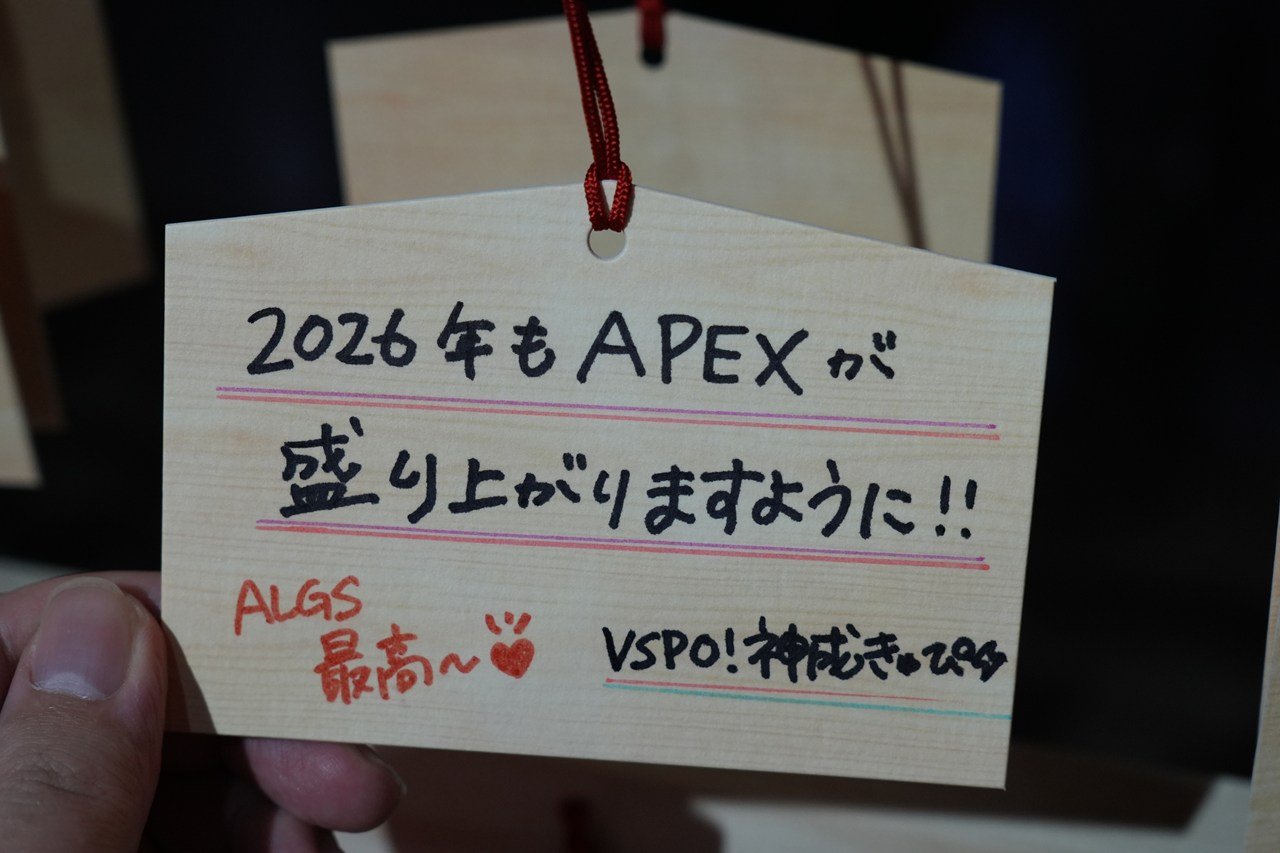 2026年もAPEXが
盛り上がりますように!!
ALGS
最高～
VSPO!神成きゅぴ